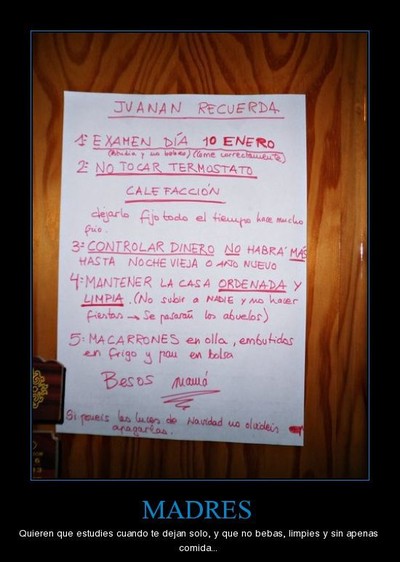 JUANAN RECUERDA
1= EXAMEN DÍA 10 ENERO
(Estudia y no bebas) (Come correctamente)
2= NO TOCAR TERMOSTATO
CALEFACCIÓN
dejarlo fijo todo el tiempo hace mucho
frío.
3= CONTROLAR DINERO NO HABRÁ MÁS
HASTA NOCHEVIEJA O AÑO NUEVO
4= MANTENER LA CASA ORDENADA Y
LIMPIA. (No subir a NADIE y no hacer
fiestas → Se pasarán los abuelos)
5= MACARRONES en olla, embutidos
en frigo y pan en bolsa
Besos mamá
Si poneis las luces de Navidad no olvideis
apagarlas.
MADRES
Quieren que estudies cuando te dejan solo, y que no bebas, limpies y sin apenas
comida...